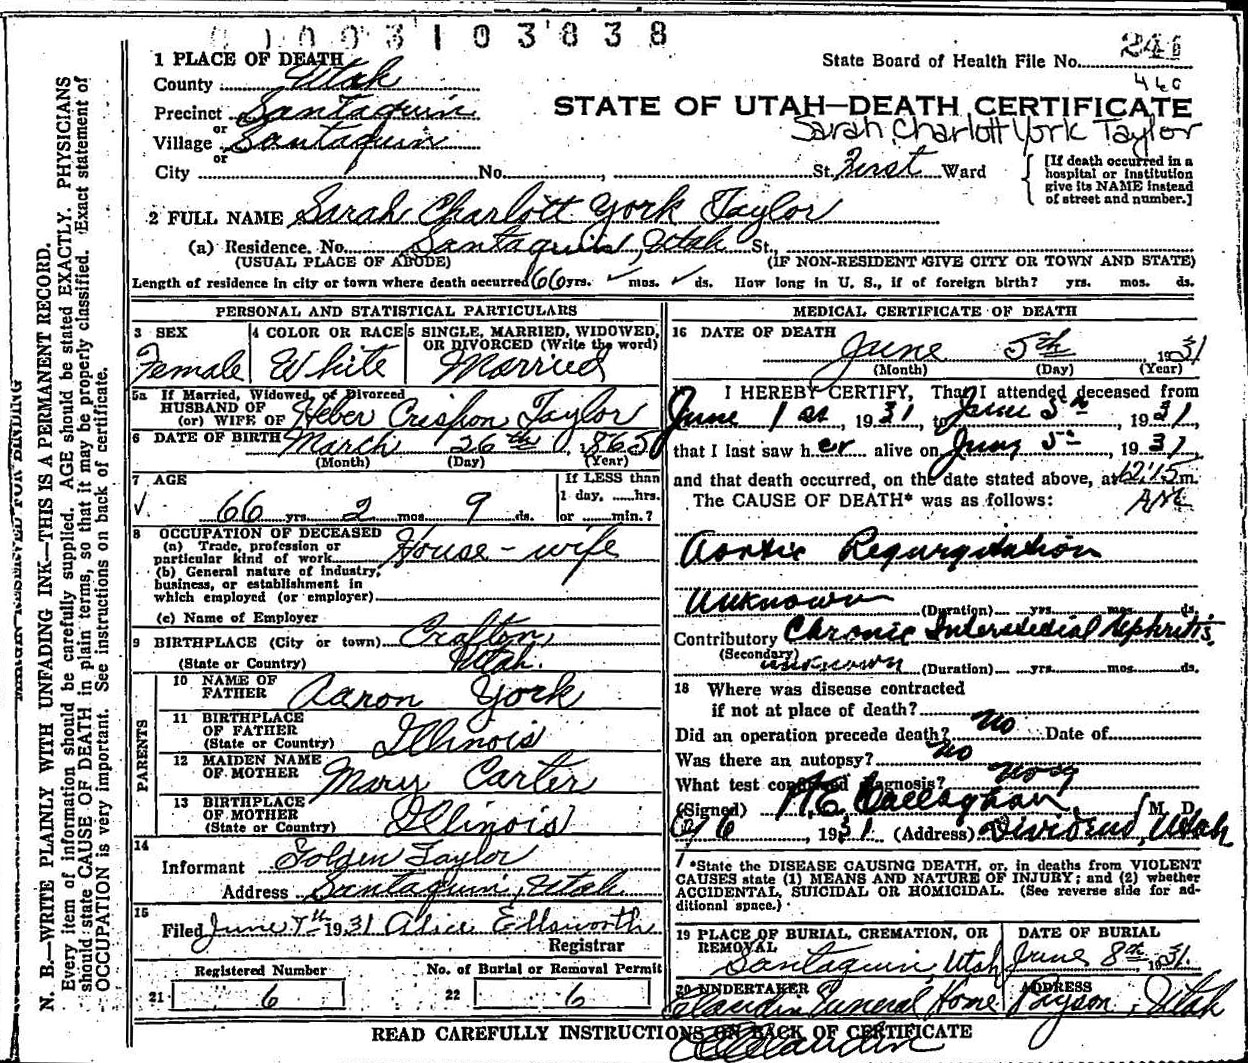 01003103838
State Board of Health File No. 241
460
STATE OF UTAH—DEATH CERTIFICATE
Sarah Charlott York Taylor
1 PLACE OF DEATH
County Utah
Precinct Santaquin
or
Village Santaquin
or
City No. , St. First Ward
[If death occurred in a
hospital or institution
give its NAME instead
of street and number.]
2 FULL NAME Sarah Charlott York Taylor
(a) Residence. No. Santaquin, Utah St.,
(USUAL PLACE OF ABODE) (IF NON-RESIDENT GIVE CITY OR TOWN AND STATE)
Length of residence in city or town where death occurred 66 yrs. ✓ mos. ✓ ds. How long in U. S., if of foreign birth? yrs. mos. ds.
PERSONAL AND STATISTICAL PARTICULARS
3 SEX
Female
4 COLOR OR RACE
White
5 SINGLE, MARRIED, WIDOWED,
OR DIVORCED (Write the word)
Married
5a If Married, Widowed, or Divorced
HUSBAND OF
(or) WIFE OF Heber Crispon Taylor
6 DATE OF BIRTH March 26th, 1865
(Month) (Day) (Year)
7 AGE
✓ 66 yrs. 2 mos. 9 ds.
If LESS than
1 day, ......hrs.
or ......min.?
8 OCCUPATION OF DECEASED
(a) Trade, profession or
particular kind of work House-wife
(b) General nature of industry,
business, or establishment in
which employed (or employer)
(c) Name of Employer
9 BIRTHPLACE (City or town) Crafton
(State or Country) Utah.
PARENTS
10 NAME OF
FATHER Aaron York
11 BIRTHPLACE
OF FATHER
(State or Country) Illinois
12 MAIDEN NAME
OF MOTHER Mary Carter
13 BIRTHPLACE
OF MOTHER
(State or Country) Illinois
14
Informant Golden Taylor
Address Santaquin, Utah
15
Filed June 7th 1931 Alice Ellsworth
Registrar
Registered Number
21 6
No. of Burial or Removal Permit
22 6
MEDICAL CERTIFICATE OF DEATH
16 DATE OF DEATH
June 5th, 1931
(Month) (Day) (Year)
17 I HEREBY CERTIFY, That I attended deceased from
June 1st, 1931, to June 5th, 1931,
that I last saw her alive on June 5th, 1931
and that death occurred, on the date stated above, at 12:15 m.
The CAUSE OF DEATH* was as follows: AM
Aortic Regurgitation
Unknown (Duration) yrs. mos. ds.
Contributory Chronic Interstitial Nephritis.
(Secondary)
unknown (Duration) yrs. mos. ds.
18 Where was disease contracted
if not at place of death?
Did an operation precede death? No Date of
Was there an autopsy? No
What test confirmed diagnosis?
(Signed) Callaghan, M. D.
6/6, 1931 (Address) Dividend, Utah
*State the DISEASE CAUSING DEATH, or, in deaths from VIOLENT
CAUSES state (1) MEANS AND NATURE OF INJURY; and (2) whether
ACCIDENTAL, SUICIDAL OR HOMICIDAL. (See reverse side for ad-
ditional space.)
19 PLACE OF BURIAL, CREMATION, OR
REMOVAL
Santaquin, Utah
DATE OF BURIAL
June 8th, 1931.
20 UNDERTAKER
Claudin Funeral Home
ADDRESS
Payson, Utah
READ CAREFULLY INSTRUCTIONS ON BACK OF CERTIFICATE
Claudin
MARGIN RESERVED FOR BINDING
N. B.—WRITE PLAINLY WITH UNFADING INK—THIS IS A PERMANENT RECORD.
Every item of information should be carefully supplied. AGE should be stated EXACTLY. PHYSICIANS
should state CAUSE OF DEATH in plain terms, so that it may be properly classified. Exact statement of
OCCUPATION is very important. See instructions on back of certificate.